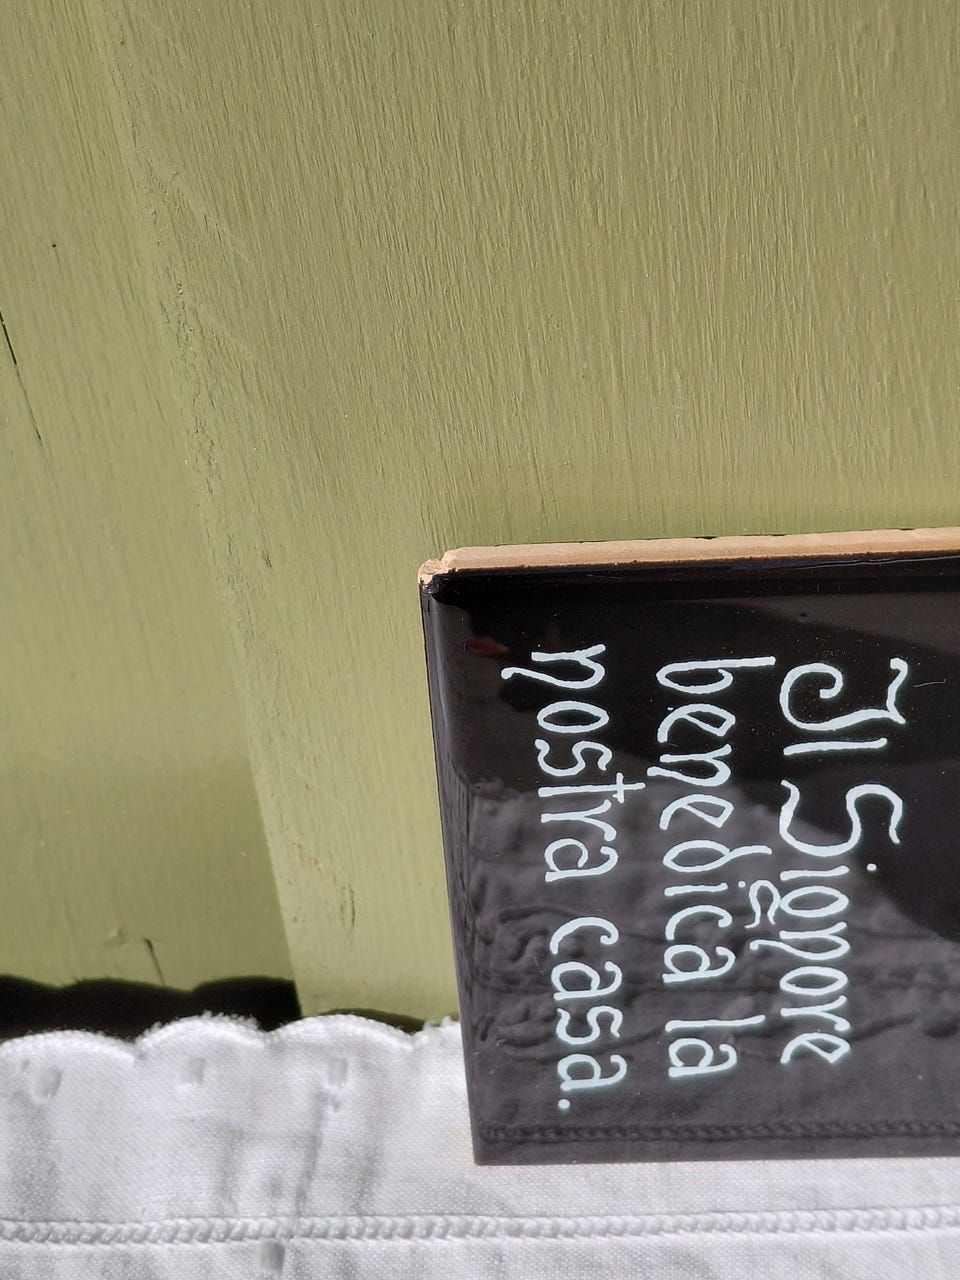 Il Signore
benedica la
nostra casa.